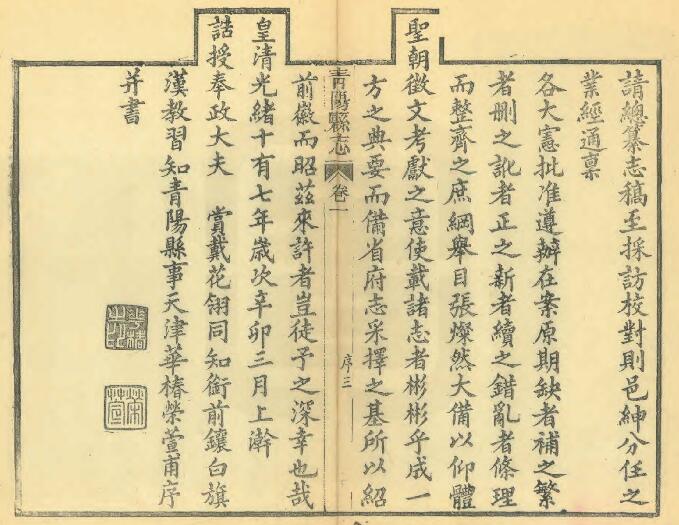 請總纂志稿至採訪校對則邑紳分任之
業經通稟
各大憲批准遵辦在案原期缺者補之繁
者刪之訛者正之新者續之錯亂者條理
而整齊之庶綱舉目張燦然大備以仰體
聖朝徵文考獻之意使載諸志者彬彬乎成一
方之典要而備省府志采擇之基所以紹
青陽縣志 卷一 序三
前徽而昭茲來許者豈徒予之深幸也哉
皇清光緒十有七年歲次辛卯三月上澣
誥授奉政大夫 賞戴花翎同知銜前鑲白旗
漢教習知青陽縣事天津華椿榮萱甫序
并書